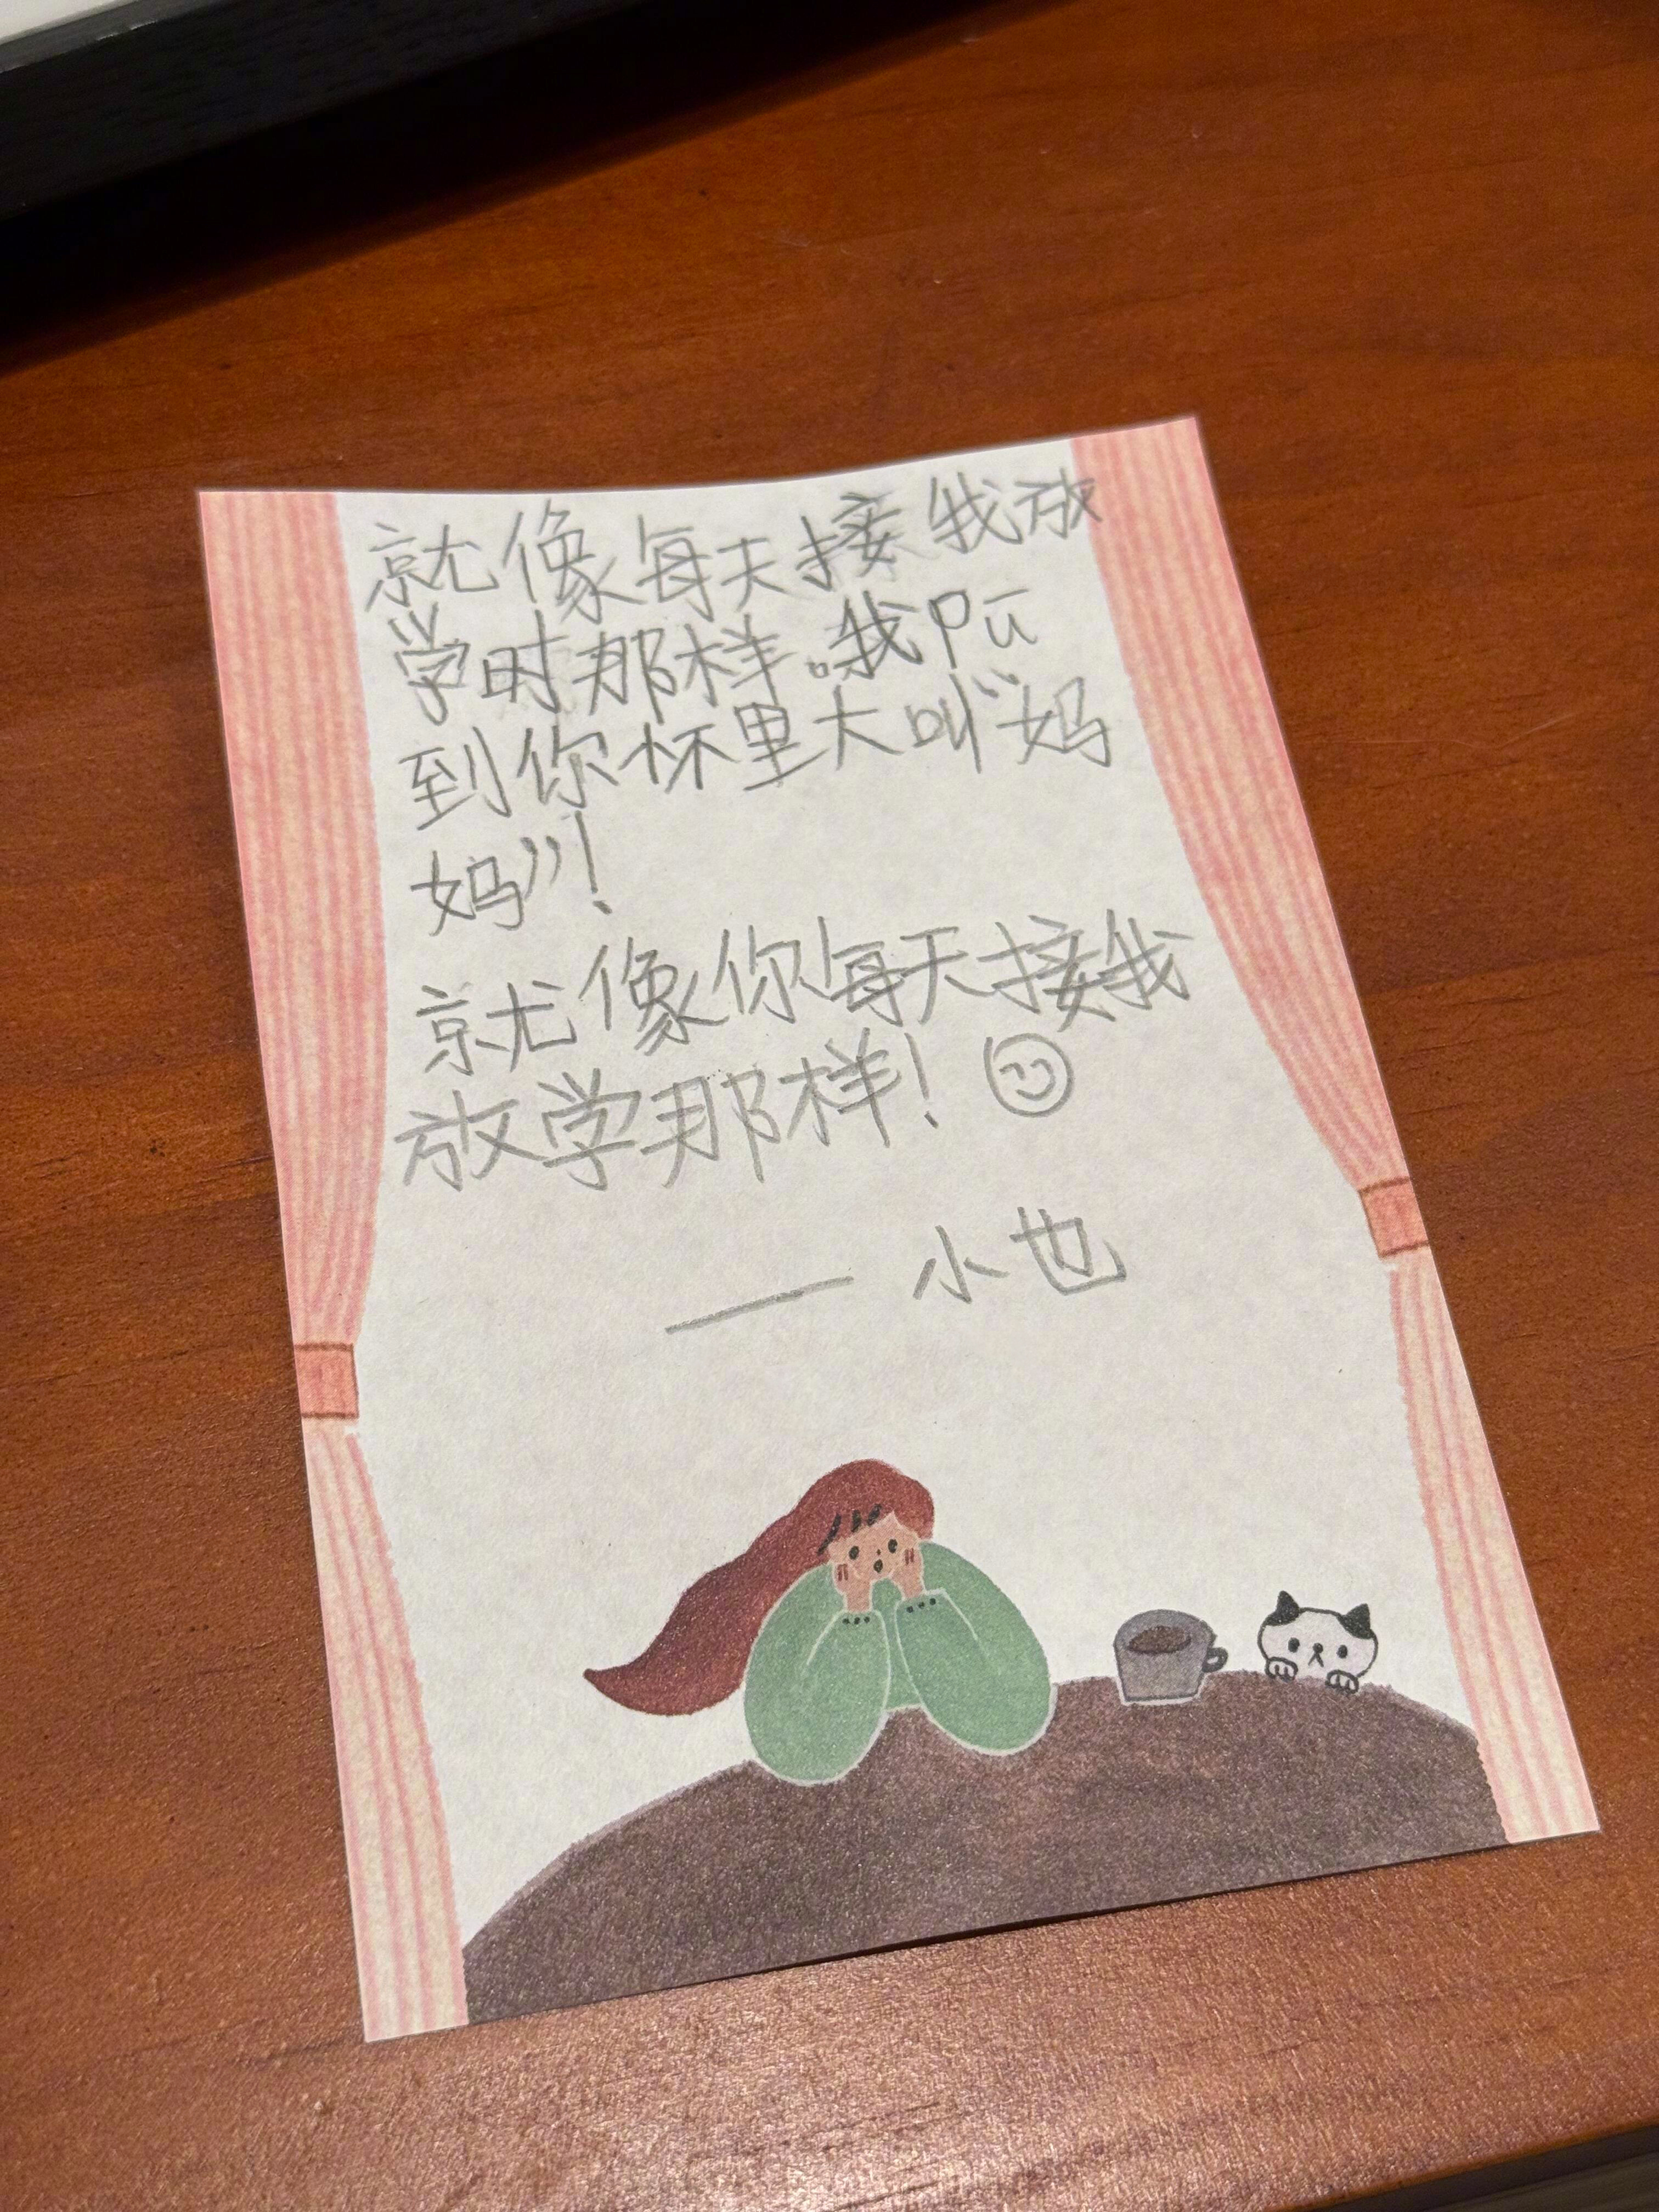 就像每天接我放
学时那样。我pū
到你怀里大叫“妈
妈”！！
就像你每天接我
放学那样！
—— 小也